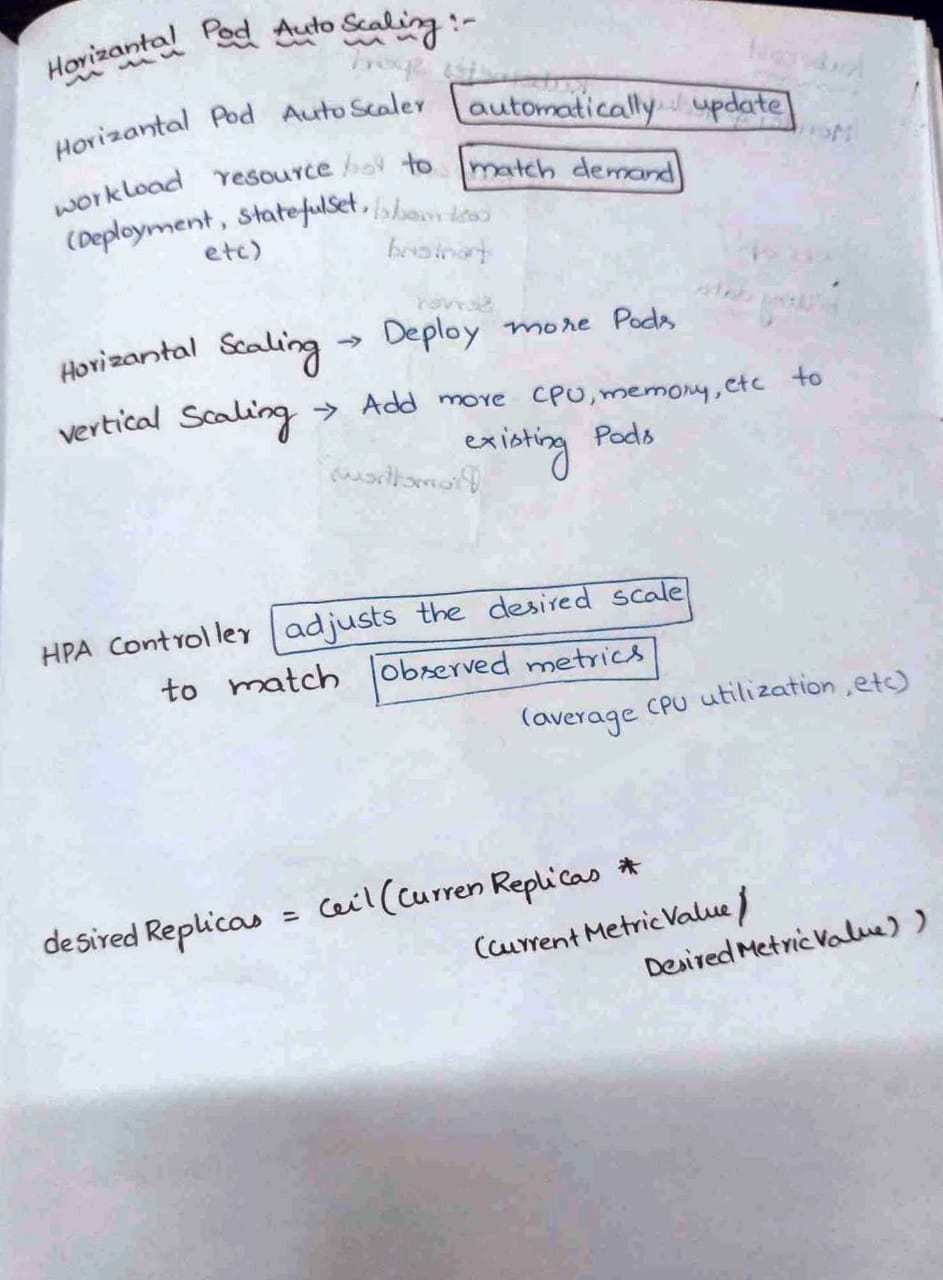 Horizantal Pod Auto Scaling :-
Horizantal Pod AutoScaler automatically update
workload resource to match demand
(Deployment, StatefulSet,
etc)
Horizantal Scaling → Deploy more Pods
vertical Scaling → Add more CPU, memory, etc to
existing Pods
HPA Controller adjusts the desired scale
to match observed metrics
(average CPU utilization, etc)
desired Replicas = ceil(Curren Replicas *
(Current Metric Value /
Desired Metric Value) )